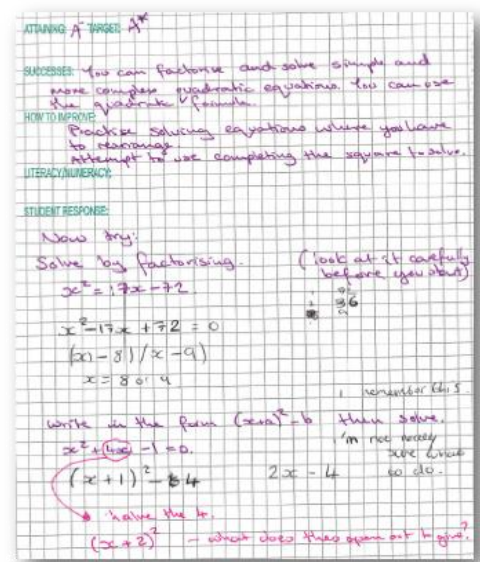 ATTAINING: A⁻ TARGET: A*
SUCCESSES: You can factorise and solve simple and
more complex quadratic equations. You can use
the quadratic formula.
HOW TO IMPROVE:
Practise solving equations where you have
to rearrange.
Attempt to use completing the square to solve.
LITERACY/NUMERACY:
STUDENT RESPONSE:
Now try:
Solve by factorising. (look at it carefully
before you start)
x² = 17x - 72
36
9
x² - 17x + 72 = 0
(x - 8)(x - 9)
x = 8 or 9
remember this
Write in the form (x+a)² - b then solve.
x² + 4x - 1 = 0.
i'm not really
sure what
to do.
(x + 1)² - 4 2x - 4
halve the 4.
(x + 2)² - what does this open out to give?